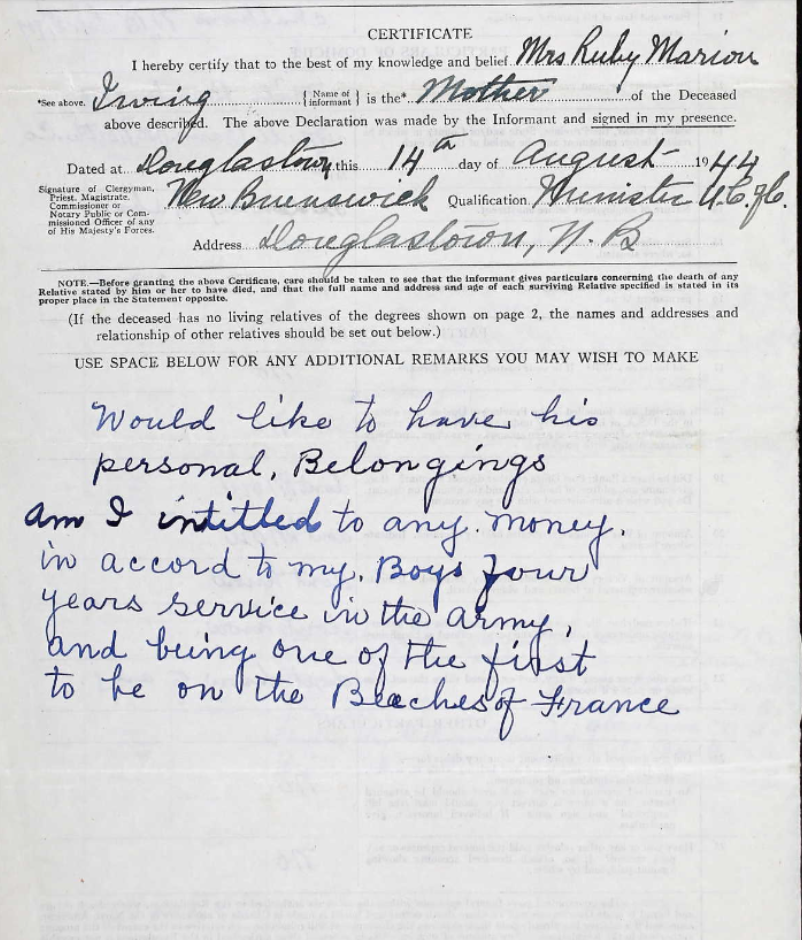 CERTIFICATE
I hereby certify that to the best of my knowledge and belief Mrs Ruby Marion
*See above. Irving { Name of informant } is the* Mother of the Deceased
above described. The above Declaration was made by the Informant and signed in my presence.
Dated at Douglastown this 14th day of August 1944
Signature of Clergyman,
Priest, Magistrate,
Commissioner or
Notary Public or Com-
missioned Officer of any
of His Majesty's Forces.
New Brunswick Qualification Minister U.C. of C.
Address Douglastown, N. B
NOTE.—Before granting the above Certificate, care should be taken to see that the informant gives particulars concerning the death of any
Relative stated by him or her to have died, and that the full name and address and age of each surviving Relative specified is stated in its
proper place in the Statement opposite.
(If the deceased has no living relatives of the degrees shown on page 2, the names and addresses and
relationship of other relatives should be set out below.)
USE SPACE BELOW FOR ANY ADDITIONAL REMARKS YOU MAY WISH TO MAKE
Would like to have his
personal, Belongings
am I intitled to any. money.
in accord to my, Boys four
years service in the army,
and being one of the first
to be on the Beaches of France